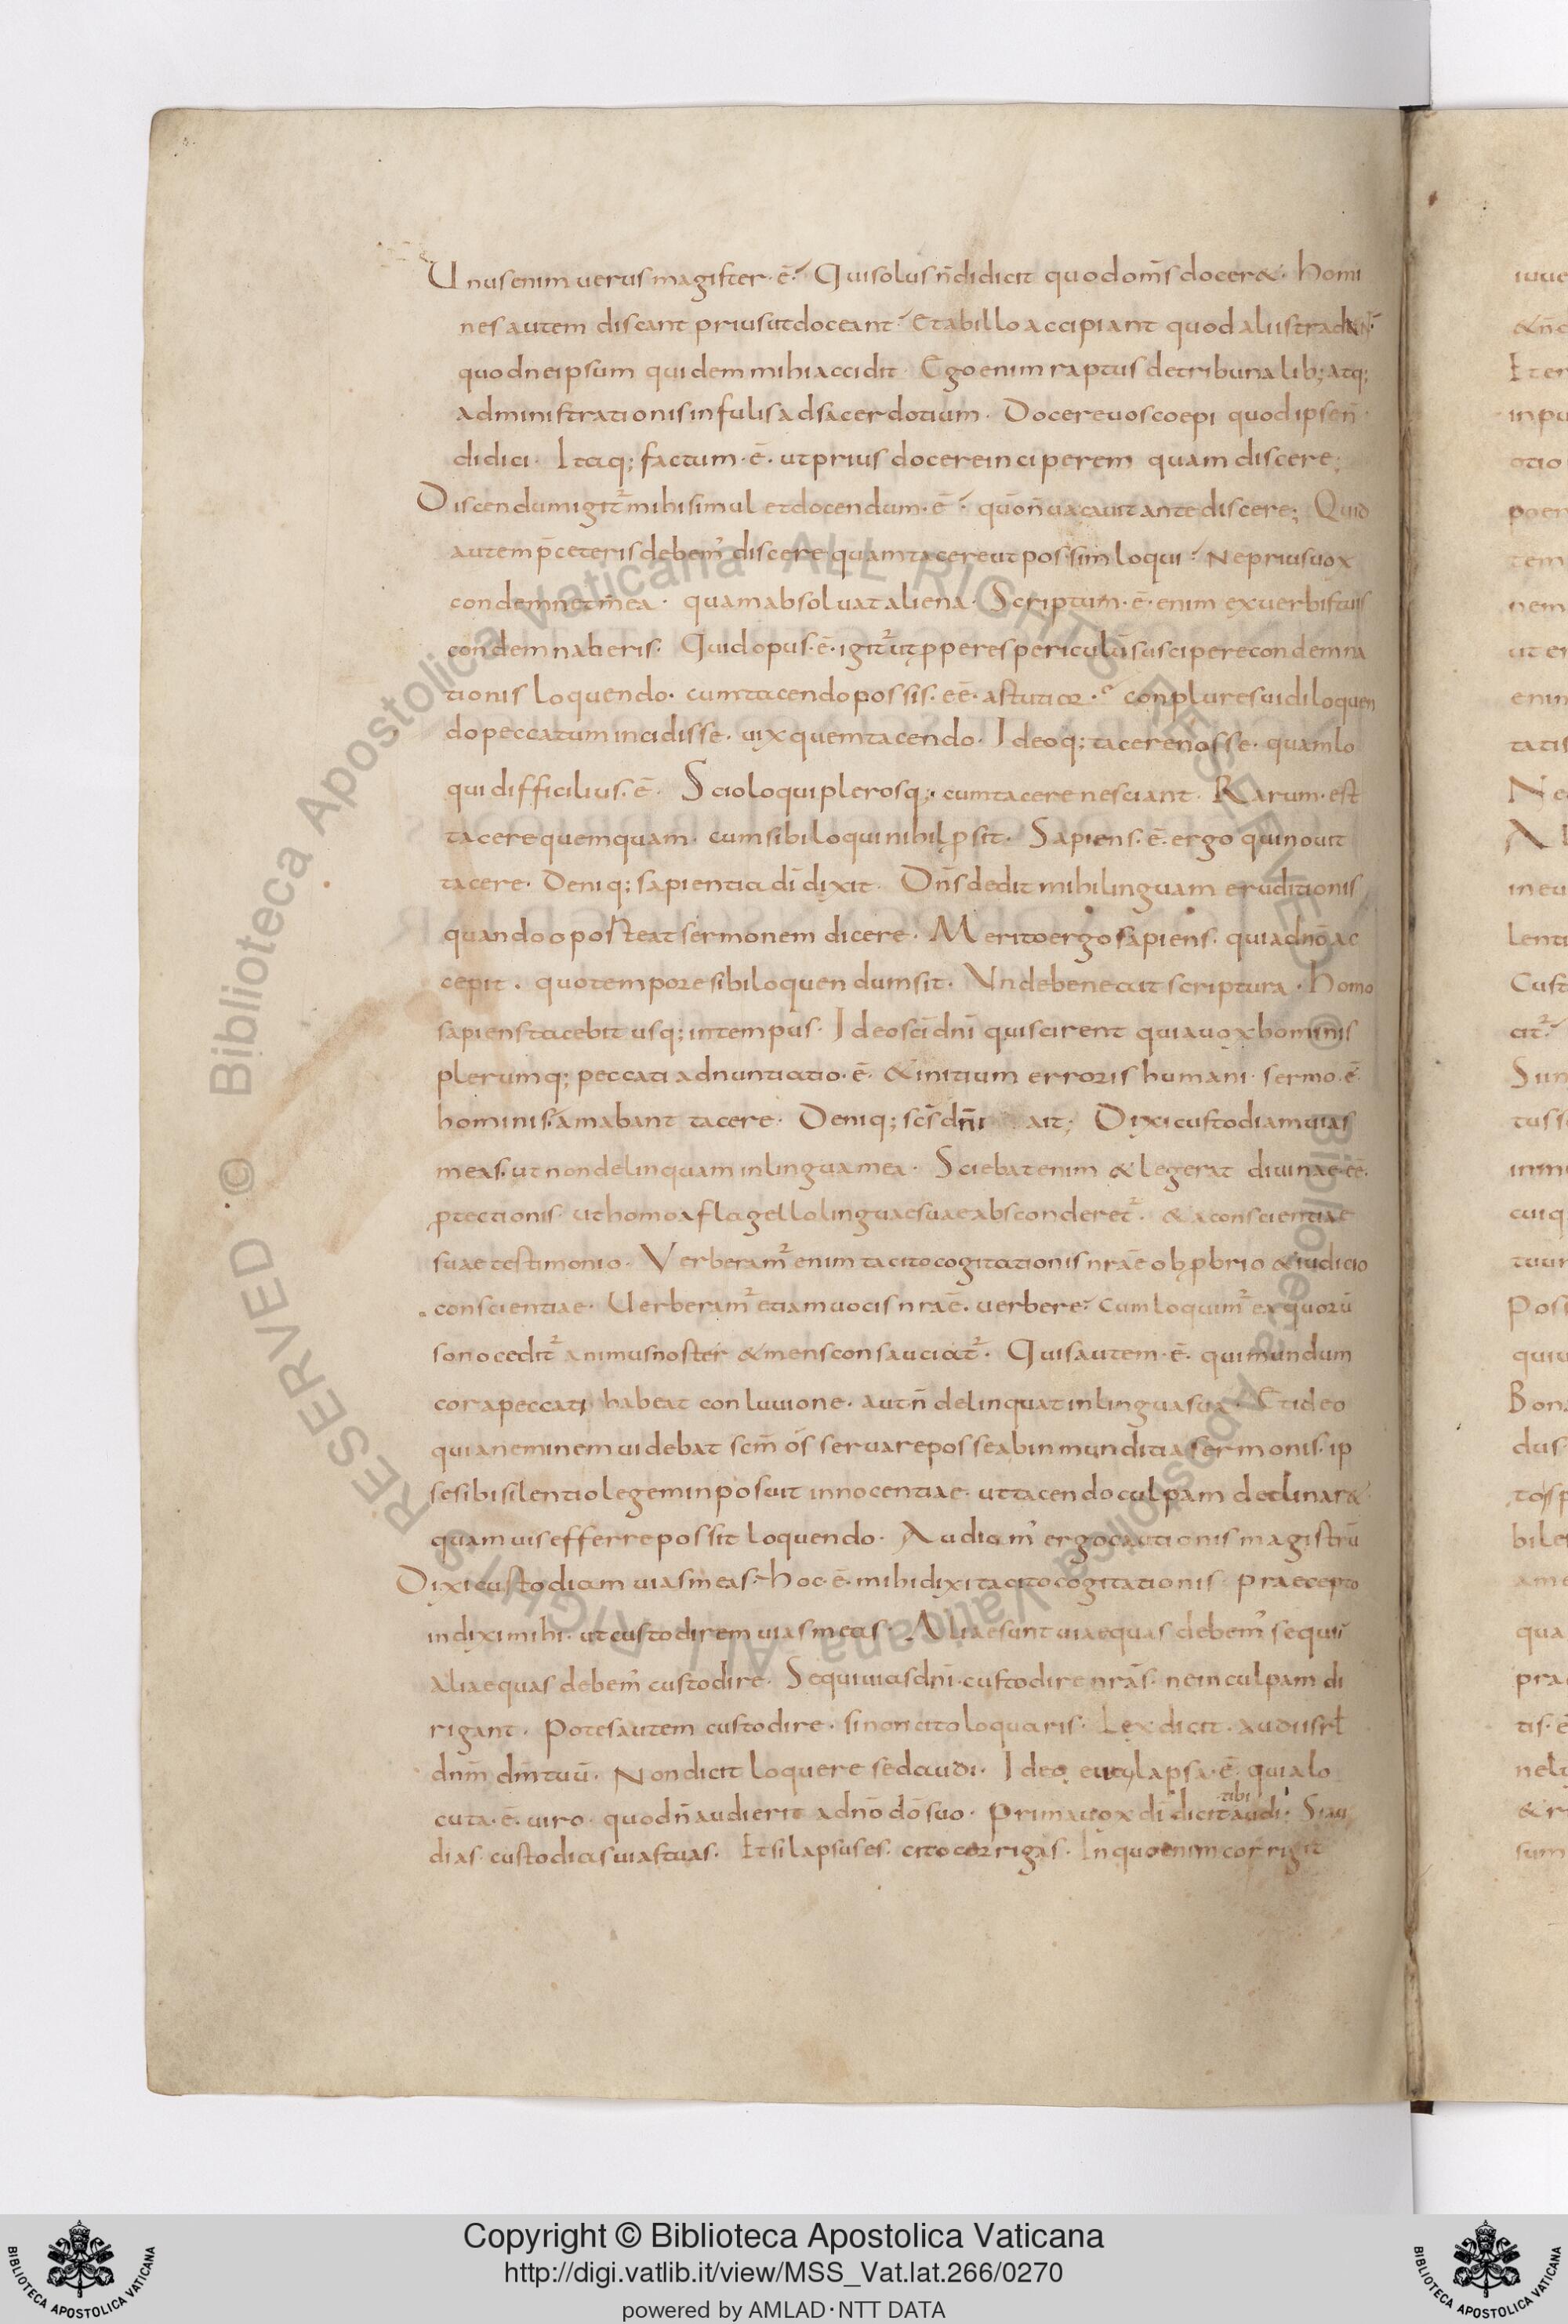 Unus enim uerus magister· ē· Qui solus n̄ didicit quod om̄s docer&· homi
nes autem discant prius ut doceant· Et ab illo accipiant quod aliis
quod ne ipsum quidem mihi accidit· Ego enim raptus de tribunalib; atq;
administrationis infulis ad sacerdotium· Docere uos coepi quod ipse n̄·
didici· Itaq; factum· ē· ut prius docere inciperem quam discere;
Discendum igit̄ mihi simul et docendum· ē· quo n̄ uacauit ante discere; Quid
autem p̄ ceteris debem' discere quam tacere ut possim loqui· Ne prius uox
condemnet mea· quam absoluat aliena· Scriptum· ē· enim ex uerbis tuis
condemnaberis· Quid opus· ē· igit̄ ut pperes periculū suscipere condemna
tionis loquendo· cum tacendo possis· eē· astutior· conplures uidi loquen
do peccatum incidisse· uix quem tacendo· Ideoq; tacere nosse· quam lo
qui difficilius· ē· Scio loqui plerosq;· cum tacere nesciant· Rarum· est
tacere quemquam· cum sibi loqui nihil psit· Sapiens· ē· ergo qui nouit
tacere· Deniq; sapientia dī dixit· Dn̄s dedit mihi linguam eruditionis
quando oposteat sermonem dicere· Merito ergo sapiens· qui a dnō ac
cepit· quo tempore sibi loquendum sit· Unde bene ait scriptura· homo
sapiens tacebit usq; in tempus· Ideo scī dnī qui scirent quia uox hominis
plerumq; peccati adnuntiatio· ē· & initium erroris humani· sermo· ē
hominis· amabant tacere· Deniq; sc̄s dn̄i ait; Dixi custodiam uias
meas· ut non delinquam in lingua mea· Sciebat enim & legerat diuinae· eē·
ptectionis· ut homo a flagello linguae suae absconderet̄· & a conscientiae
suae testimonio· Verberam̄ enim tacito cogitationis nrāe obpbrio & iudicio
conscientiae· Uerberam̄ etiam uocis nraē· uerbere· Cum loquim̄ ea quorū
sono cedit̄ animus noster & mens consauciat̄· Quis autem· ē· qui mundum
cor a peccati habeat conluuione· aut n̄ delinquat in lingua sua· Et ideo
quia neminem uidebat scm̄ os seruare posse ab inmunditia sermonis· ip
se sibi silentio legem inposuit innocentiae· ut tacendo culpam declinar&
quam uis efferre possit loquendo· Audiam' ergo cautionis magistrū
Dixi custodiam uias meas· hoc· ē· mihi dixi tacito cogitationis praecepto
indixi mihi· ut custodirem uias meas· Aliae sunt uiae quas debem' sequi
aliae quas debem' custodire· Sequi uias dnī· custodire nrās· ne in culpam di
rigant· Potes autem custodire· si non cito loquaris· Lex dicit· audi isrl̄
dnm̄ dm̄ tuū· Non dicit loquere sed audi· Ideo lapsa· ē· quia lo
cuta· ē· uiro· quod n̄ audierit a dnō dō suo· Prima uox dī dicit tibi audi· Si au
dias· custodias uias tuas· Et si lapsus es· cito corrigas· In quo enim corrigit
iuue
&n̄c
Et en
in pu
otio
poen
tem
nem
ut er
enim
tatis
No
A l
in eu
lenti
Cust
cit̄
Sun
tus s
inm
cuiq
tuun
Pos
quiu
Bona
dus·
tos p
bile
ame
qua
pra
tis· ē
nelu
& r
sum
Copyright © Biblioteca Apostolica Vaticana
http://digi.vatlib.it/view/MSS_Vat.lat.266/0270
powered by AMLAD·NTT DATA
BIBLIOTECA APOSTOLICA VATICANA
BIBLIOTECA APOSTOLICA VATICANA
© Biblioteca Apostolica Vaticana ALL RIGHTS RESERVED
© Biblioteca Apostolica Vaticana ALL RIGHTS RESERVED